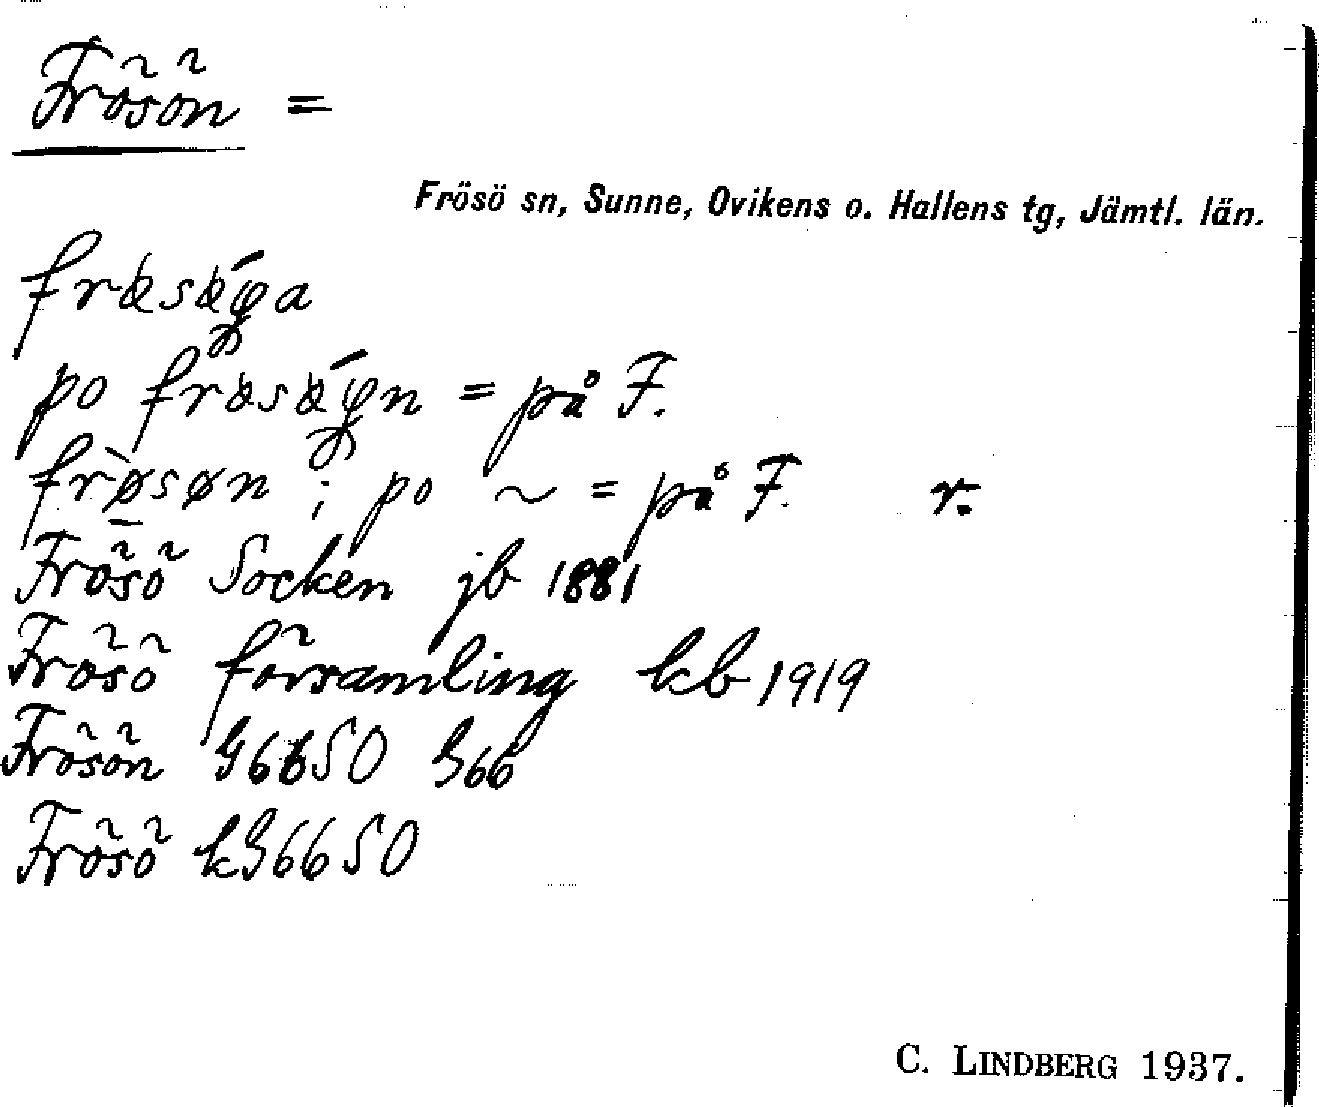 Frösön =
Frösö sn, Sunne, Ovikens o. Hallens tg, Jämtl. län.
po = på F.
frøsøn ; po ~ = på F. r.
Frösö Socken jb 1881
Frösö församling kb 1919
Frösön G66SO
Frösö
C. LINDBERG 1937.